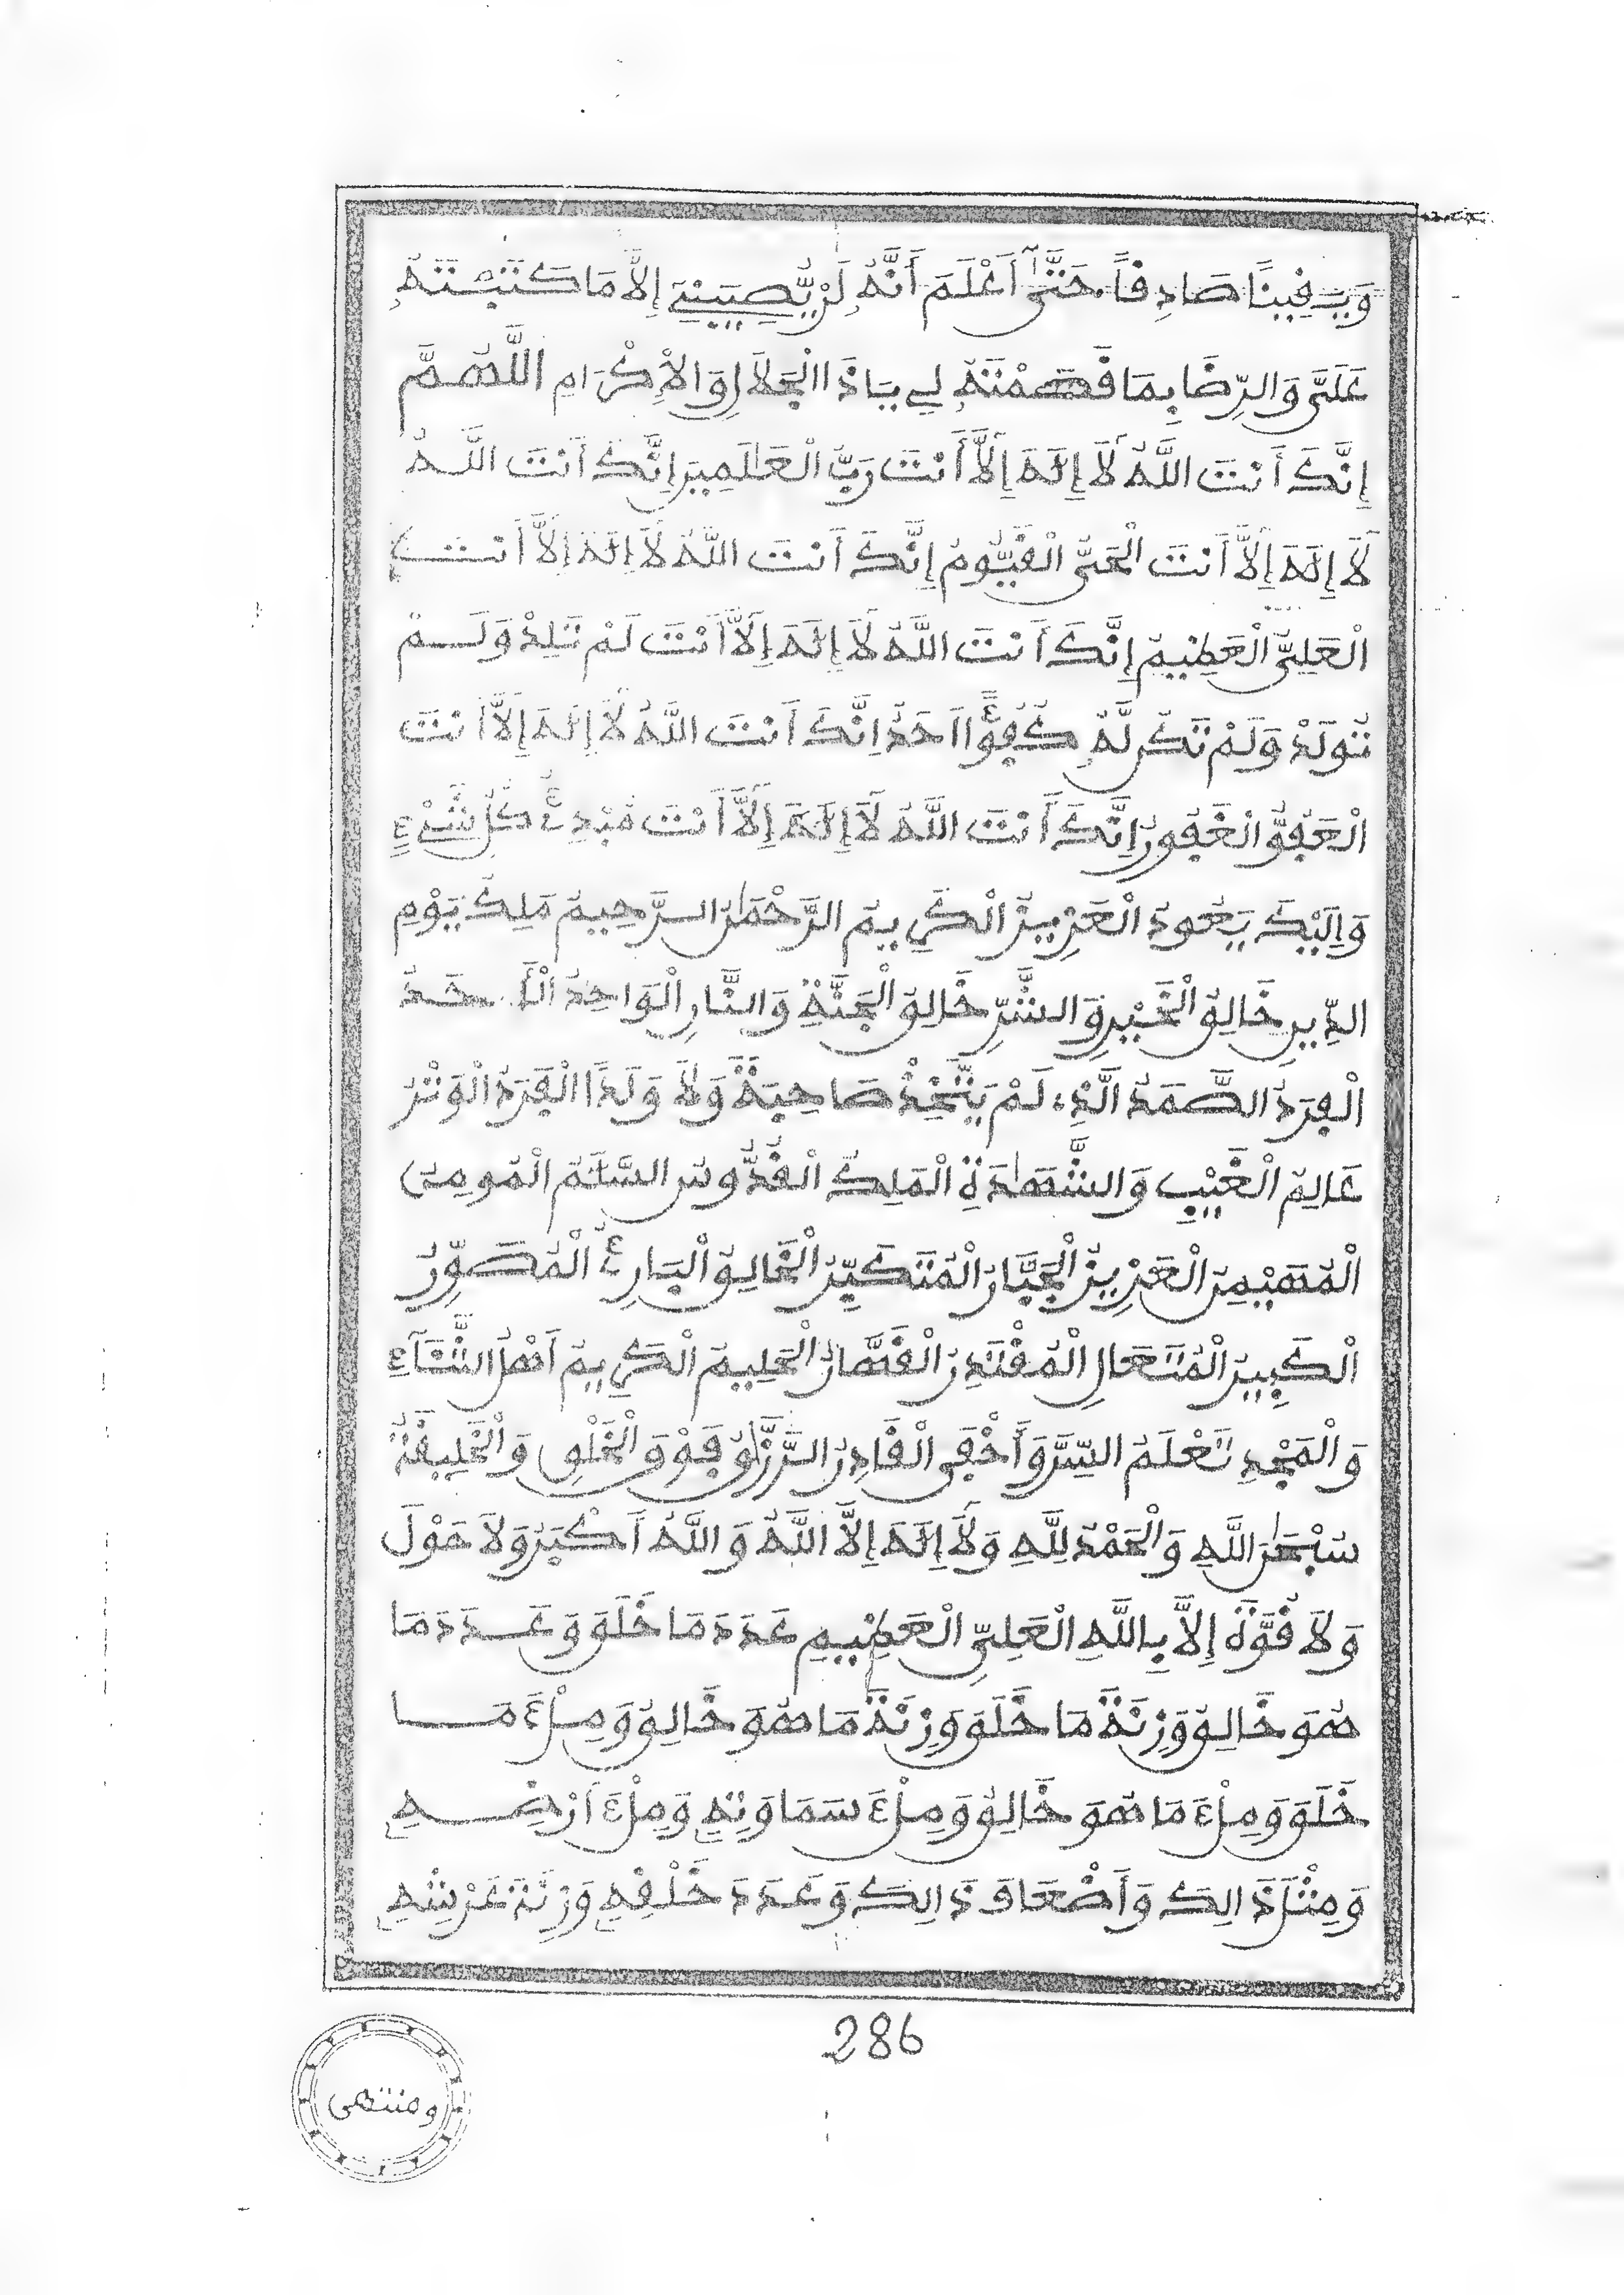 وَيَفِينًا صَادِفاً حَتَّىٰ أَعْلَمَ أَنَّهُ لَنْ يُّصِيبَنِي إِلَّا مَا كَتَبْتَهُ
عَلَىَّ وَالرِّضَا بِمَا فَسَمْتَهُ لِي يَا ذَا الْجَلَالِ وَالْإِكْرَامِ اللَّهُمَّ
إِنَّكَ أَنْتَ اللَّهُ لَا إِلَهَ إِلَّا أَنْتَ رَبُّ الْعَالَمِينَ إِنَّكَ أَنْتَ اللَّهُ
لَا إِلَهَ إِلَّا أَنْتَ الْحَىُّ الْفَيُّومُ إِنَّكَ أَنْتَ اللَّهُ لَا إِلَهَ إِلَّا أَنْتَ
الْعَلِىُّ الْعَظِيمُ إِنَّكَ أَنْتَ اللَّهُ لَا إِلَهَ إِلَّا أَنْتَ لَمْ تَلِدْ وَلَمْ
تُولَدْ وَلَمْ تَكُن لَّهُ كُفُؤًا اَحَدٌ إِنَّكَ أَنْتَ اللَّهُ لَا إِلَهَ إِلَّا أَنْتَ
الْعَفُوُّ الْغَفُورُ إِنَّكَ أَنْتَ اللَّهُ لَا إِلَهَ إِلَّا أَنْتَ مُبْدِئُ كُلِّ شَيْءٍ
وَإِلَيْكَ يَعُودُ الْعَزِيزُ الْكَرِيمُ الرَّحْمَٰنُ الرَّحِيمُ مَلِكُ يَوْمِ
الدِّينِ خَالِقُ الْخَيْرِ وَالشَّرِّ خَالِقُ الْجَنَّةِ وَالنَّارِ الْوَاحِدُ الْأَحَدُ
الْفِرَدُ الصَّمَدُ الَّذِي لَمْ يَتَّخِذْ صَاحِبَةً وَلَا وَلَدًا الْفَرَدُ الْوَتْرُ
عَالِمُ الْغَيْبِ وَالشَّهَٰدَةِ الْمَلِكُ الْفُدُّوسُ السَّلَٰمُ الْمُومِنُ
الْمُهَيْمِنُ الْعَزِيزُ الْجَبَّارُ الْمُتَكَبِّرُ الْخَالِقُ الْبَارِئُ الْمُصَوِّرُ
الْكَبِيرُ الْمُتَعَالِ الْمُفْتَدِرُ الْفَهَّارُ الْحَلِيمُ الْكَرِيمُ أَهْلُ الثَّنَآءِ
وَالْمَجْدِ تَعْلَمُ السِّرَّ وَأَخْفَى الْفَادِرُ الرَّزَّاقُ فَوْقَ الْخَلْقِ وَالْخَلِيفَةُ
سُبْحَٰنَ اللَّهِ وَالْحَمْدُ لِلَّهِ وَلَا إِلَهَ إِلَّا اللَّهُ وَاللَّهُ أَكْبَرُ وَلَا حَوْلَ
وَلَا فُوَّةَ إِلَّا بِاللَّهِ الْعَلِىِّ الْعَظِيمِ عَدَدَ مَا خَلَقَ وَعَدَدَ مَا
هُوَ خَالِقٌ وَزِنَةَ مَا خَلَقَ وَزِنَةَ مَا هُوَ خَالِقٌ وَمِلْءَ مَا
خَلَقَ وَمِلْءَ مَا هُوَ خَالِقٌ وَمِلْءَ سَمَاوَتِهِ وَمِلْءَ أَرْضِهِ
وَمِثْلَ ذَالِكَ وَأَضْعَافَ ذَالِكَ وَعَدَدَ خَلْفِهِ وَزِنَةَ عَرْشِهِ
286
ومنتهى